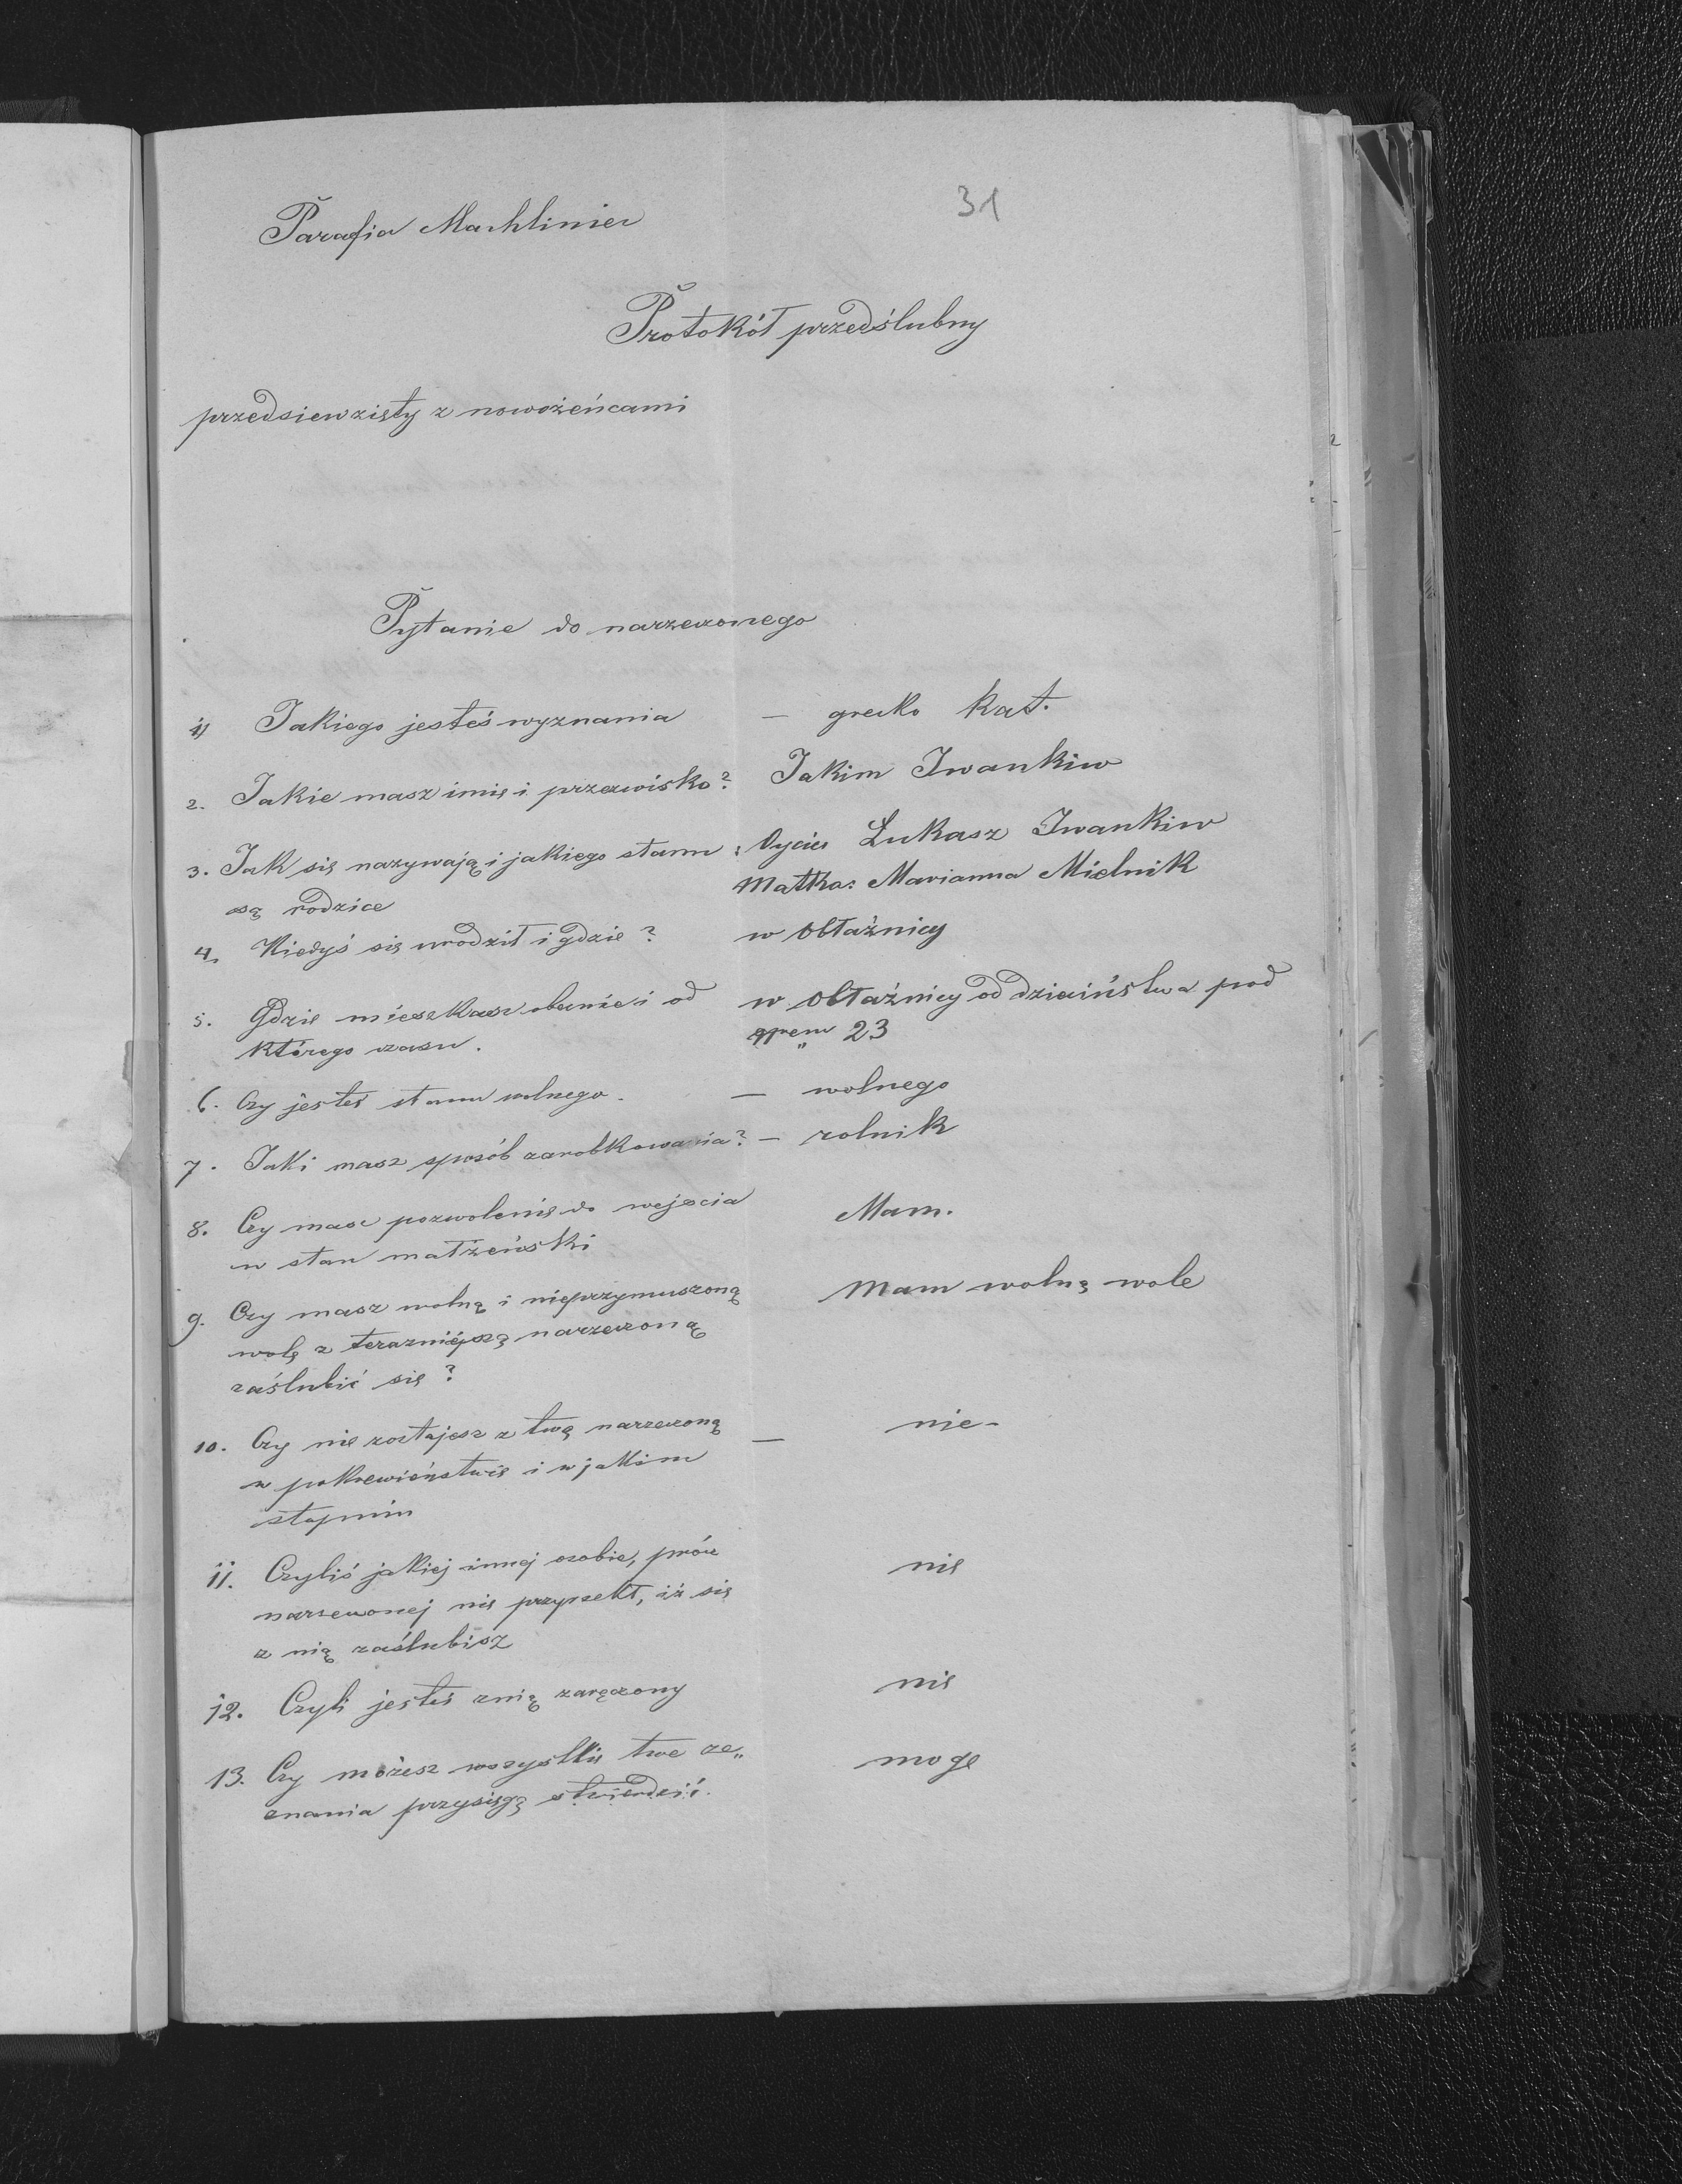 31
Parafia Machliniec
Protokół przedślubny
przedsiewzięty z nowożeńcami
Pytanie do narzeczonego
1) Jakiego jesteś wyznania — grecko kat.
2. Jakie masz imię i przezwisko? Jakim Iwankiw
3. Jak się nazywają i jakiego stanu : Oyciec Łukasz Iwankiw
są rodzice Matka: Marianna Mielnik
4. Kiedyś się urodził i gdzie? w Obłaźnicy
5. Gdzie mieszkasz obecnie i od w Obłaźnicy od dzieciństwa pod
którego czasu. 23
6. Czy jesteś stanu wolnego. — wolnego
7. Jaki masz sposób zarobkowania? — rolnik
8. Czy masz pozwolenie do wejścia Mam.
w stan małżeński
9. Czy masz wolną i nieprzymuszoną Mam wolną wole
wolę z terazniejszą narzeczoną
zaślubić się?
10. Czy nie zostajesz z twą narzeczoną — nie -
w pokrewieństwie i w jakim
stopniu
11. Czyliś jakiej innej osobie, prócz nie
narzeczonej nie przyrzekł, iż się
z nią zaślubisz
12. Czyli jesteś znią zaręczony nie
13. Czy możesz wszystkie twe ze„ moge
znania przysięgą stwierdzić.